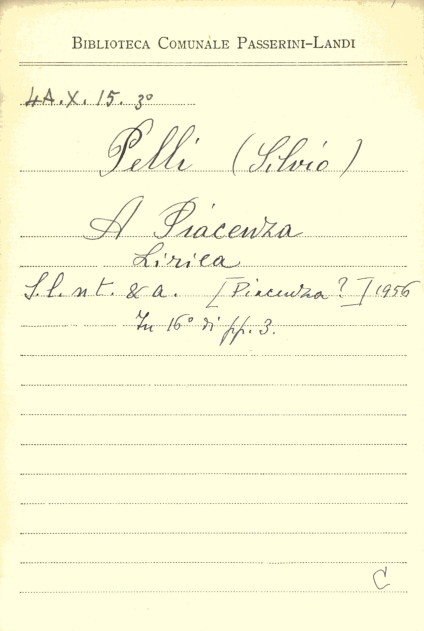 BIBLIOTECA COMUNALE PASSERINI-LANDI
4A.X.15.3º
Pelli (Silvio)
A Piacenza
Lirica
S. l. n t. & a. [Piacenza?] 1956
In 16º di pp. 3.
C